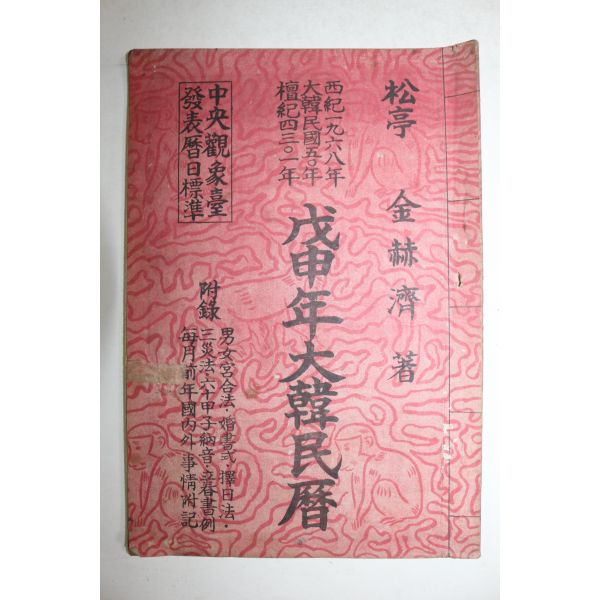 松亭 金赫濟 著
西紀一九六八年
大韓民國五〇年
檀紀四三〇一年
戊申年大韓民曆
中央觀象臺
發表曆日標準
附錄
男女宮合法·婚書式·擇日法·
三災法·六十甲子納音·立春書例
每月前年國內外事情附記